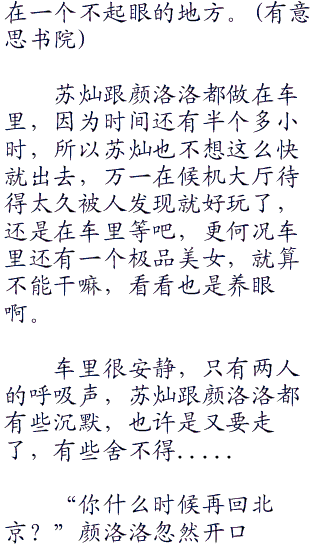 在一个不起眼的地方。(有意
思书院)
苏灿跟颜洛洛都做在车
里，因为时间还有半个多小
时，所以苏灿也不想这么快
就出去，万一在候机大厅待
得太久被人发现就好玩了，
还是在车里等吧，更何况车
里还有一个极品美女，就算
不能干嘛，看看也是养眼
啊。
车里很安静，只有两人
的呼吸声，苏灿跟颜洛洛都
有些沉默，也许是又要走
了，有些舍不得.....
“你什么时候再回北
京？”颜洛洛忽然开口